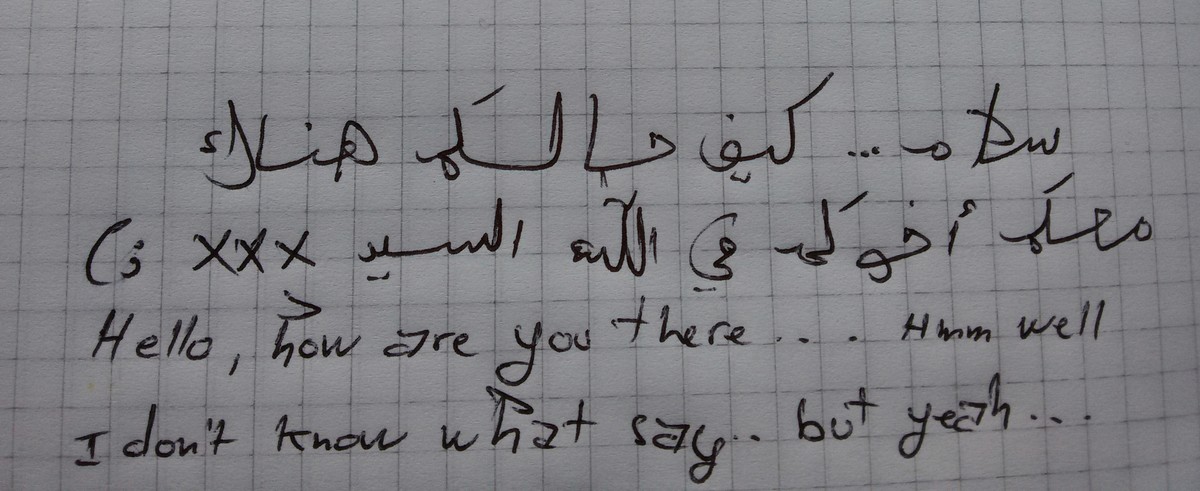 سلام ... كيف حالكم هناك
معكم أخوكم في الله السيد xxx ز)
Hello, how are you there .... Hmm well
I don't know what say.. but yeah...